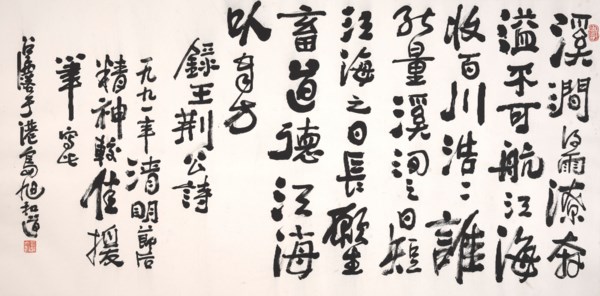 溪澗得雨潦奔
溢不可航江海
收百川浩〻誰
能量溪澗之日短
江海之日長願生
畜道德江海
以自方
錄王荊公詩
一九九一年清明節后
精神較佳援
筆寫此
于港島旭和道